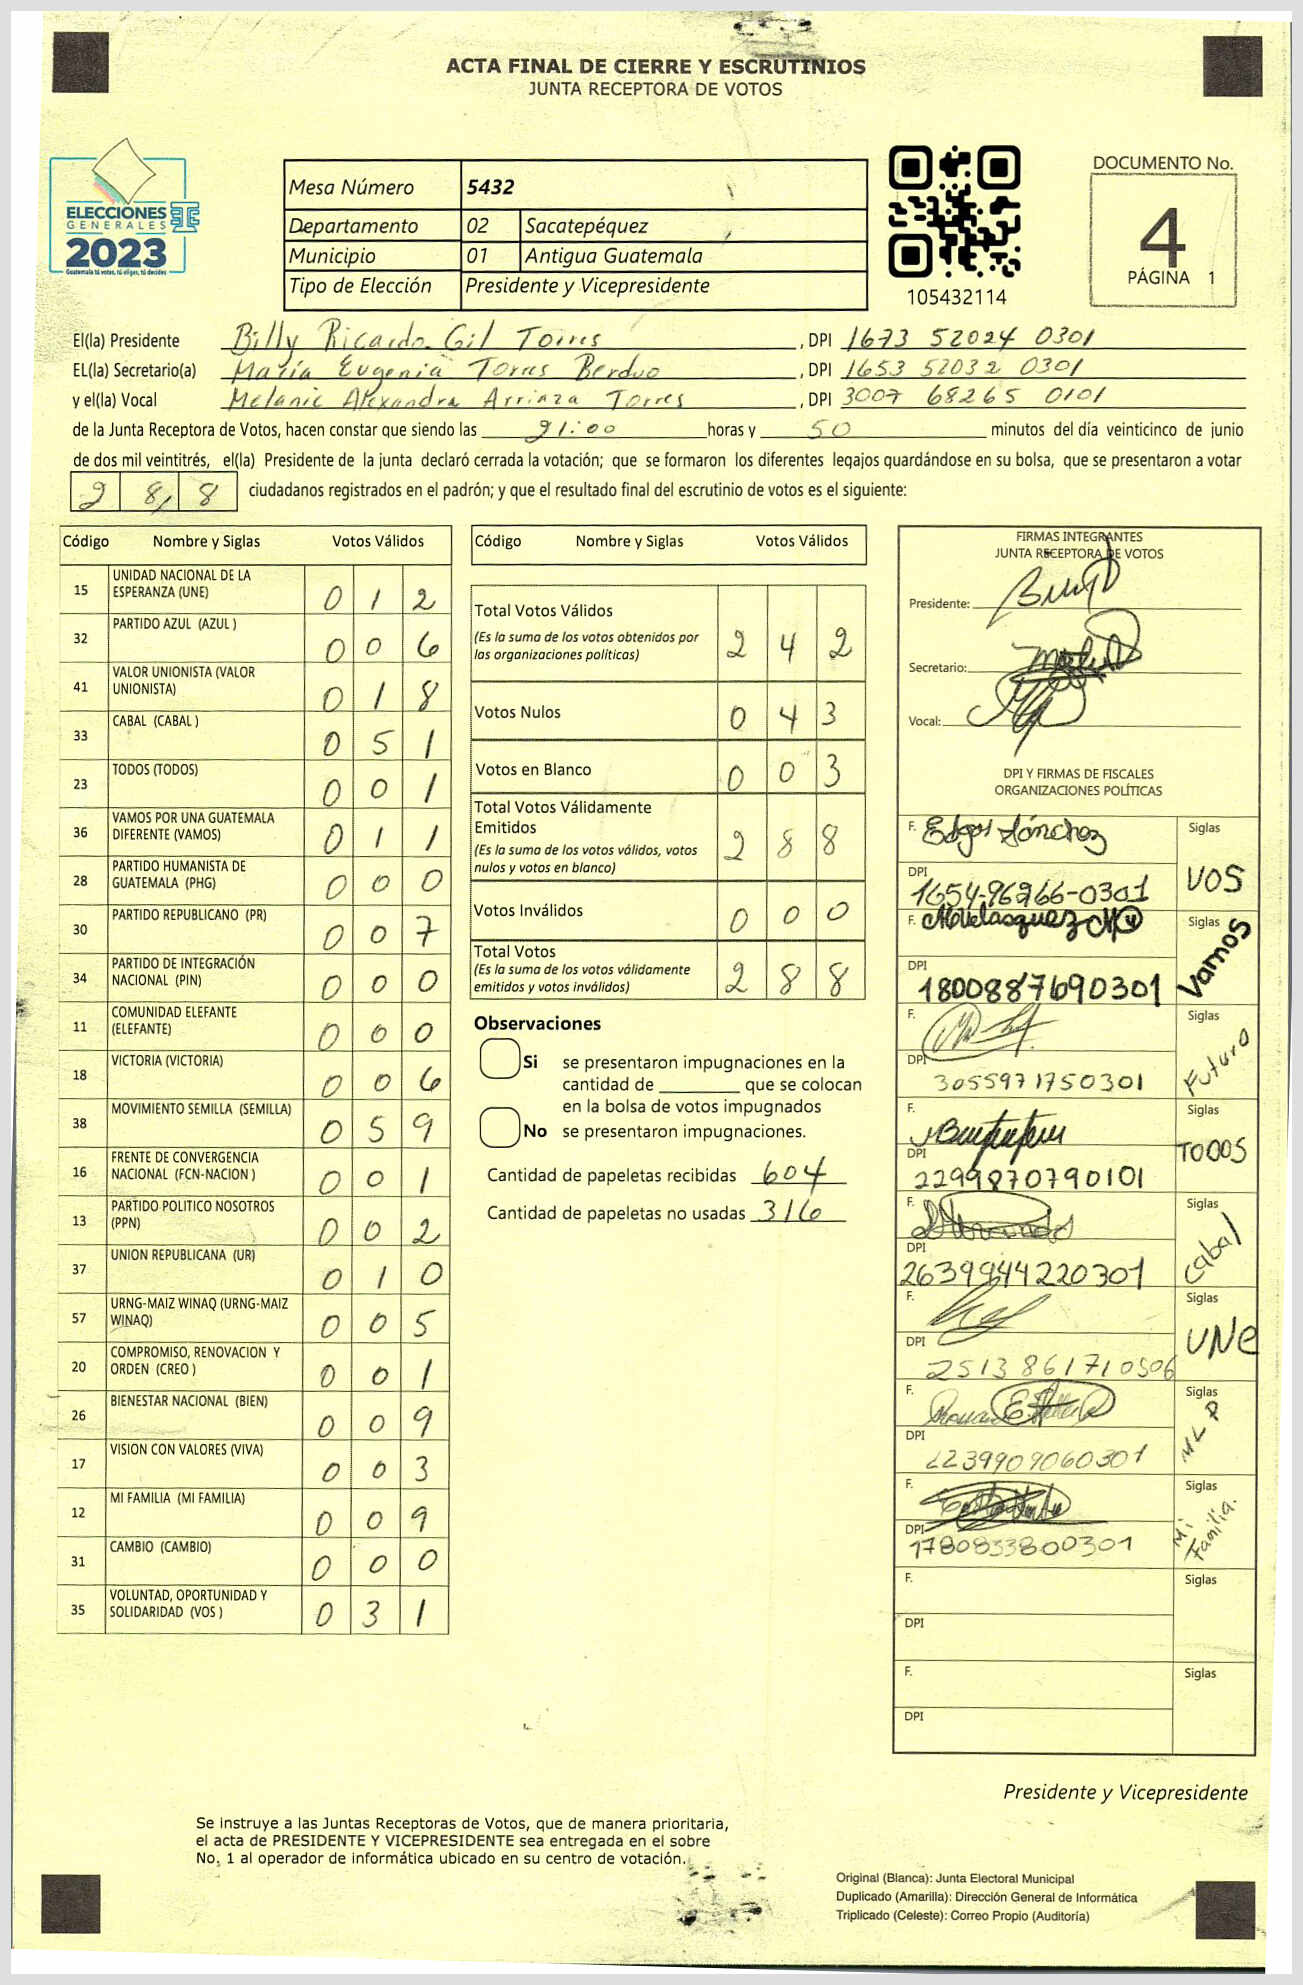 ACTA FINAL DE CIERRE Y ESCRUTINIOS
JUNTA RECEPTORA DE VOTOS
ELECCIONES
GENERALES
2023
Guatemala tú votas, tú eliges, tú decides
Mesa Número 5432
Departamento 02 Sacatepéquez
Municipio 01 Antigua Guatemala
Tipo de Elección Presidente y Vicepresidente
105432114
DOCUMENTO No.
4
PÁGINA 1
El(la) Presidente Billy Ricardo Gil Torres, DPI 1673 52024 0301
EL(la) Secretario(a) María Eugenia Torres Berduo, DPI 1653 52032 0301
y el(la) Vocal Melanie Alexandra Arriaza Torres, DPI 3007 68265 0101
de la Junta Receptora de Votos, hacen constar que siendo las 21:00 horas y 50 minutos del día veinticinco de junio
de dos mil veintitrés, el(la) Presidente de la junta declaró cerrada la votación; que se formaron los diferentes legajos guardándose en su bolsa, que se presentaron a votar
2 8 8 ciudadanos registrados en el padrón; y que el resultado final del escrutinio de votos es el siguiente:
Código Nombre y Siglas Votos Válidos
15 UNIDAD NACIONAL DE LA ESPERANZA (UNE) 0 1 2
32 PARTIDO AZUL (AZUL ) 0 0 6
41 VALOR UNIONISTA (VALOR UNIONISTA) 0 1 8
33 CABAL (CABAL ) 0 5 1
23 TODOS (TODOS) 0 0 1
36 VAMOS POR UNA GUATEMALA DIFERENTE (VAMOS) 0 1 1
28 PARTIDO HUMANISTA DE GUATEMALA (PHG) 0 0 0
30 PARTIDO REPUBLICANO (PR) 0 0 7
34 PARTIDO DE INTEGRACIÓN NACIONAL (PIN) 0 0 0
11 COMUNIDAD ELEFANTE (ELEFANTE) 0 0 0
18 VICTORIA (VICTORIA) 0 0 6
38 MOVIMIENTO SEMILLA (SEMILLA) 0 5 9
16 FRENTE DE CONVERGENCIA NACIONAL (FCN-NACION ) 0 0 1
13 PARTIDO POLITICO NOSOTROS (PPN) 0 0 2
37 UNION REPUBLICANA (UR) 0 1 0
57 URNG-MAIZ WINAQ (URNG-MAIZ WINAQ) 0 0 5
20 COMPROMISO, RENOVACION Y ORDEN (CREO ) 0 0 1
26 BIENESTAR NACIONAL (BIEN) 0 0 9
17 VISION CON VALORES (VIVA) 0 0 3
12 MI FAMILIA (MI FAMILIA) 0 0 9
31 CAMBIO (CAMBIO) 0 0 0
35 VOLUNTAD, OPORTUNIDAD Y SOLIDARIDAD (VOS ) 0 3 1
Código Nombre y Siglas Votos Válidos
Total Votos Válidos 2 4 2
(Es la suma de los votos obtenidos por
las organizaciones políticas)
Votos Nulos 0 4 3
Votos en Blanco 0 0 3
Total Votos Válidamente
Emitidos 2 8 8
(Es la suma de los votos válidos, votos
nulos y votos en blanco)
Votos Inválidos 0 0 0
Total Votos 2 8 8
(Es la suma de los votos válidamente
emitidos y votos inválidos)
Observaciones
Si se presentaron impugnaciones en la
cantidad de ________ que se colocan
en la bolsa de votos impugnados
No se presentaron impugnaciones.
Cantidad de papeletas recibidas 604
Cantidad de papeletas no usadas 316
FIRMAS INTEGRANTES
JUNTA RECEPTORA DE VOTOS
Presidente:
Secretario:
Vocal:
DPI Y FIRMAS DE FISCALES
ORGANIZACIONES POLÍTICAS
F. Edgar Sánchez Siglas
DPI 1654-96266-0301 VOS
F. Siglas
DPI 1800887690301 Vamos
F. Siglas
DPI 3055971750301 Futuro
F. Siglas
DPI 2299870790101 TODOS
F. Siglas
DPI 2639944220301 Cabal
F. Siglas
DPI 2513861710506 UNE
F. Siglas
DPI 2239909060301 MLP
F. Siglas
DPI 1780833800301 Mi Familia.
F. Siglas
DPI
F. Siglas
DPI
Presidente y Vicepresidente
Se instruye a las Juntas Receptoras de Votos, que de manera prioritaria,
el acta de PRESIDENTE Y VICEPRESIDENTE sea entregada en el sobre
No. 1 al operador de informática ubicado en su centro de votación.
Original (Blanca): Junta Electoral Municipal
Duplicado (Amarilla): Dirección General de Informática
Triplicado (Celeste): Correo Propio (Auditoría)